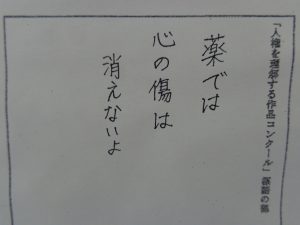 「人権を理解する作品コンクール」標語の部
薬では
心の傷は
消えないよ